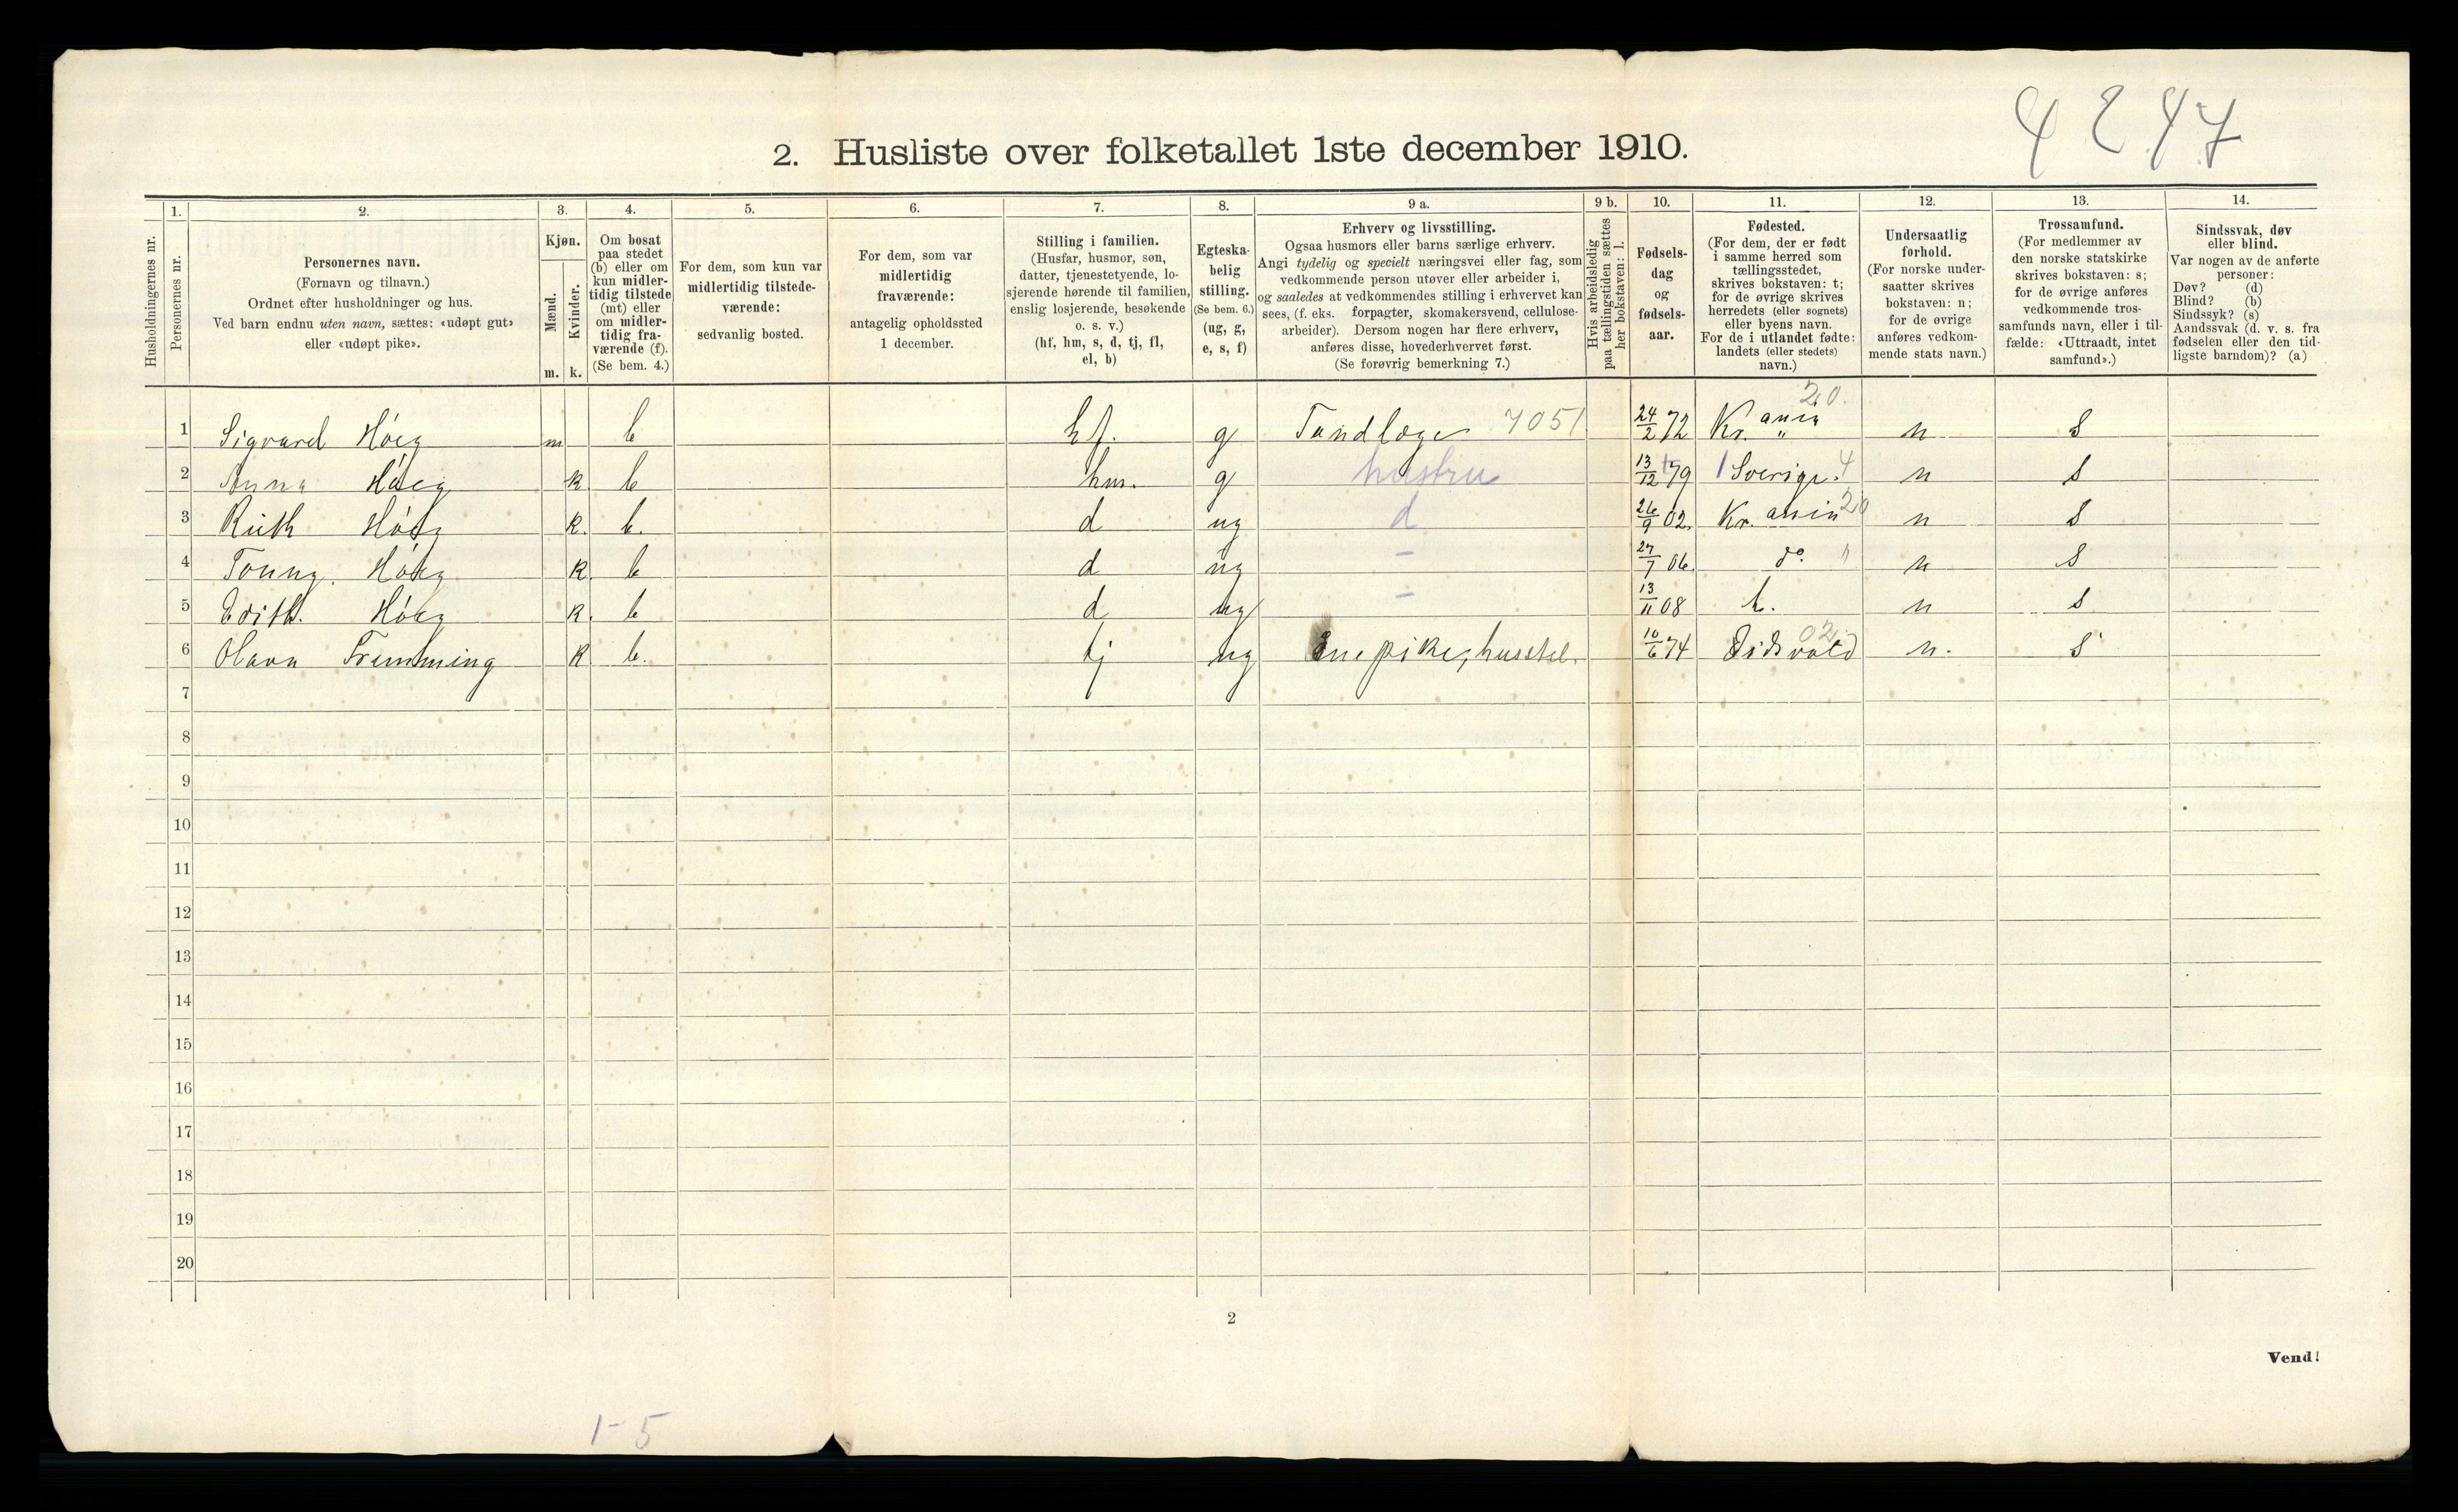 4247
2. Husliste over folketallet 1ste december 1910.
Husholdningernes nr.
1.
Personernes nr.
2.
Personernes navn.
(Fornavn og tilnavn.)
Ordnet efter husholdninger og hus.
Ved barn endnu uten navn, sættes: «udøpt gut»
eller «udøpt pike».
3.
Kjøn.
Mænd.
Kvinder.
m. k.
4.
Om bosat
paa stedet
(b) eller om
kun midler-
tidig tilstede
(mt) eller
om midler-
tidig fra-
værende (f).
(Se bem. 4.)
5.
For dem, som kun var
midlertidig tilstede-
værende:
sedvanlig bosted.
6.
For dem, som var
midlertidig
fraværende:
antagelig opholdssted
1 december.
7.
Stilling i familien.
(Husfar, husmor, søn,
datter, tjenestetyende, lo-
sjerende hørende til familien,
enslig losjerende, besøkende
o. s. v.)
(hf, hm, s, d, tj, fl,
el, b)
8.
Egteska-
belig
stilling.
(Se bem. 6.)
(ug, g,
e, s, f)
9 a.
Erhverv og livsstilling.
Ogsaa husmors eller barns særlige erhverv.
Angi tydelig og specielt næringsvei eller fag, som
vedkommende person utøver eller arbeider i,
og saaledes at vedkommendes stilling i erhvervet kan
sees, (f. eks. forpagter, skomakersvend, cellulose-
arbeider). Dersom nogen har flere erhverv,
anføres disse, hovederhvervet først.
(Se forøvrig bemerkning 7.)
9 b.
Hvis arbeidsledig
paa tællingstiden sættes
her bokstaven: l.
10.
Fødsels-
dag
og
fødsels-
aar.
11.
Fødested.
(For dem, der er født
i samme herred som
tællingsstedet,
skrives bokstaven: t;
for de øvrige skrives
herredets (eller sognets)
eller byens navn.
For de i utlandet fødte:
landets (eller stedets)
navn.)
12.
Undersaatlig
forhold.
(For norske under-
saatter skrives
bokstaven: n;
for de øvrige
anføres vedkom-
mende stats navn.)
13.
Trossamfund.
(For medlemmer av
den norske statskirke
skrives bokstaven: s;
for de øvrige anføres
vedkommende tros-
samfunds navn, eller i til-
fælde: «Uttraadt, intet
samfund».)
14.
Sindssvak, døv
eller blind.
Var nogen av de anførte
personer:
Døv? (d)
Blind? (b)
Sindssyk? (s)
Aandssvak (d. v. s. fra
fødselen eller den tid-
ligste barndom)? (a)
20.
1 Sigvard Høeg m b hf. g Tandlæge 7051 24/2 72 Kr.ania n s
2 Anna Høeg k b hm. g hustru 13/12 79 Sverige. 4 n s
3 Ruth Høeg k. b. d ug d 26/9 02. Kr.ania 20 n s
4 Tonny. Høeg k. b d ug – 27/7 06. do. " n s
5 Edith. Høeg k. b d ug – 13/11 08 t. n s
6 Olava Fremming k b. tj ug Enepike, husstel. 10/6 74 Eidsvold 02 n. s
7
8
9
10
11
12
13
14
15
16
17
18
19
20
2
Vend!
1-5